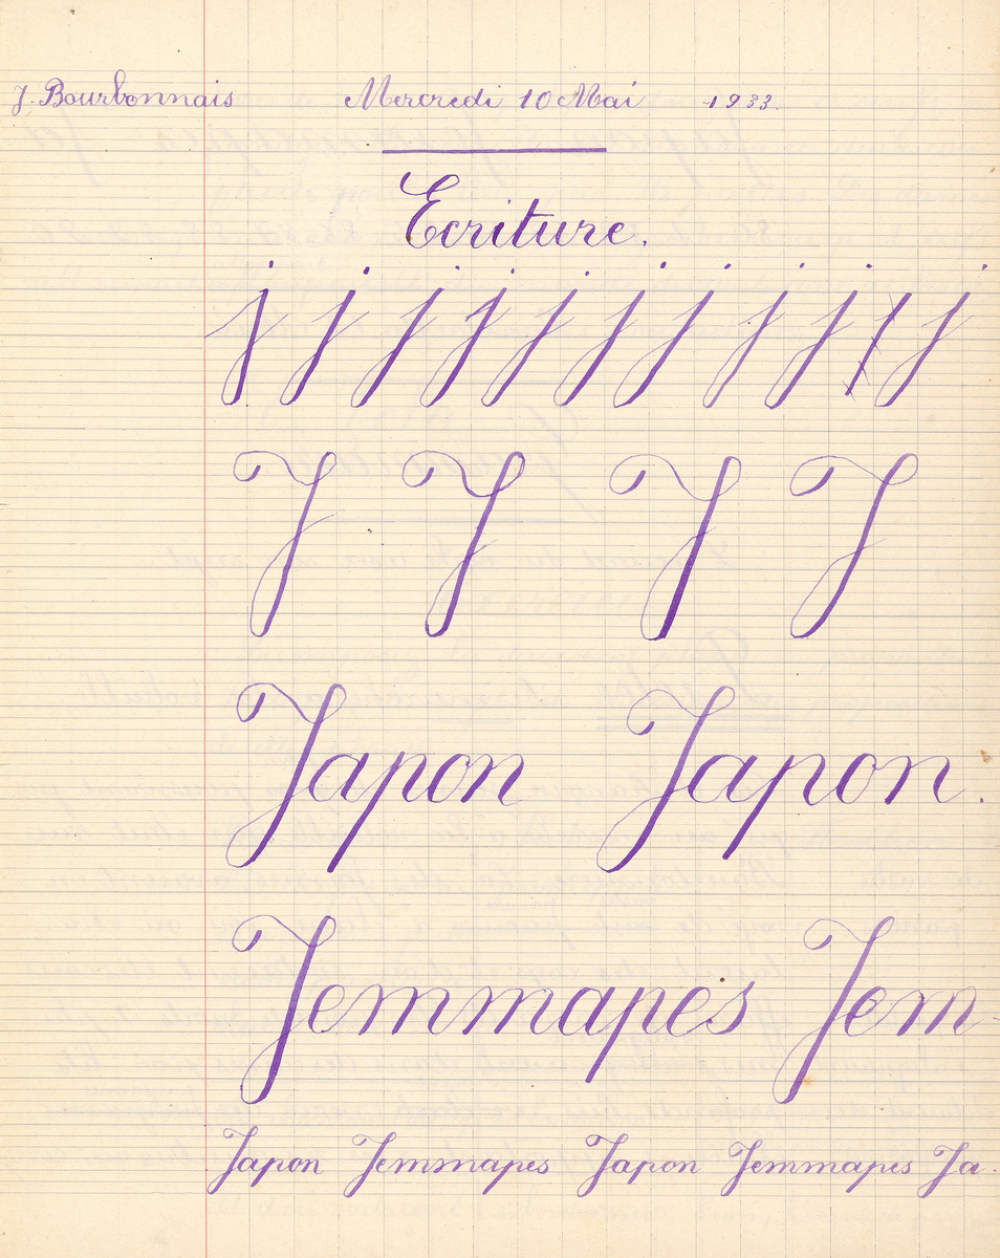 J. Bourbonnais Mercredi 10 Mai 1933.
Ecriture.
j j j j j j j j j j j
J J J J
Japon Japon.
Jemmapes Jem-
Japon Jemmapes Japon Jemmapes Ja-